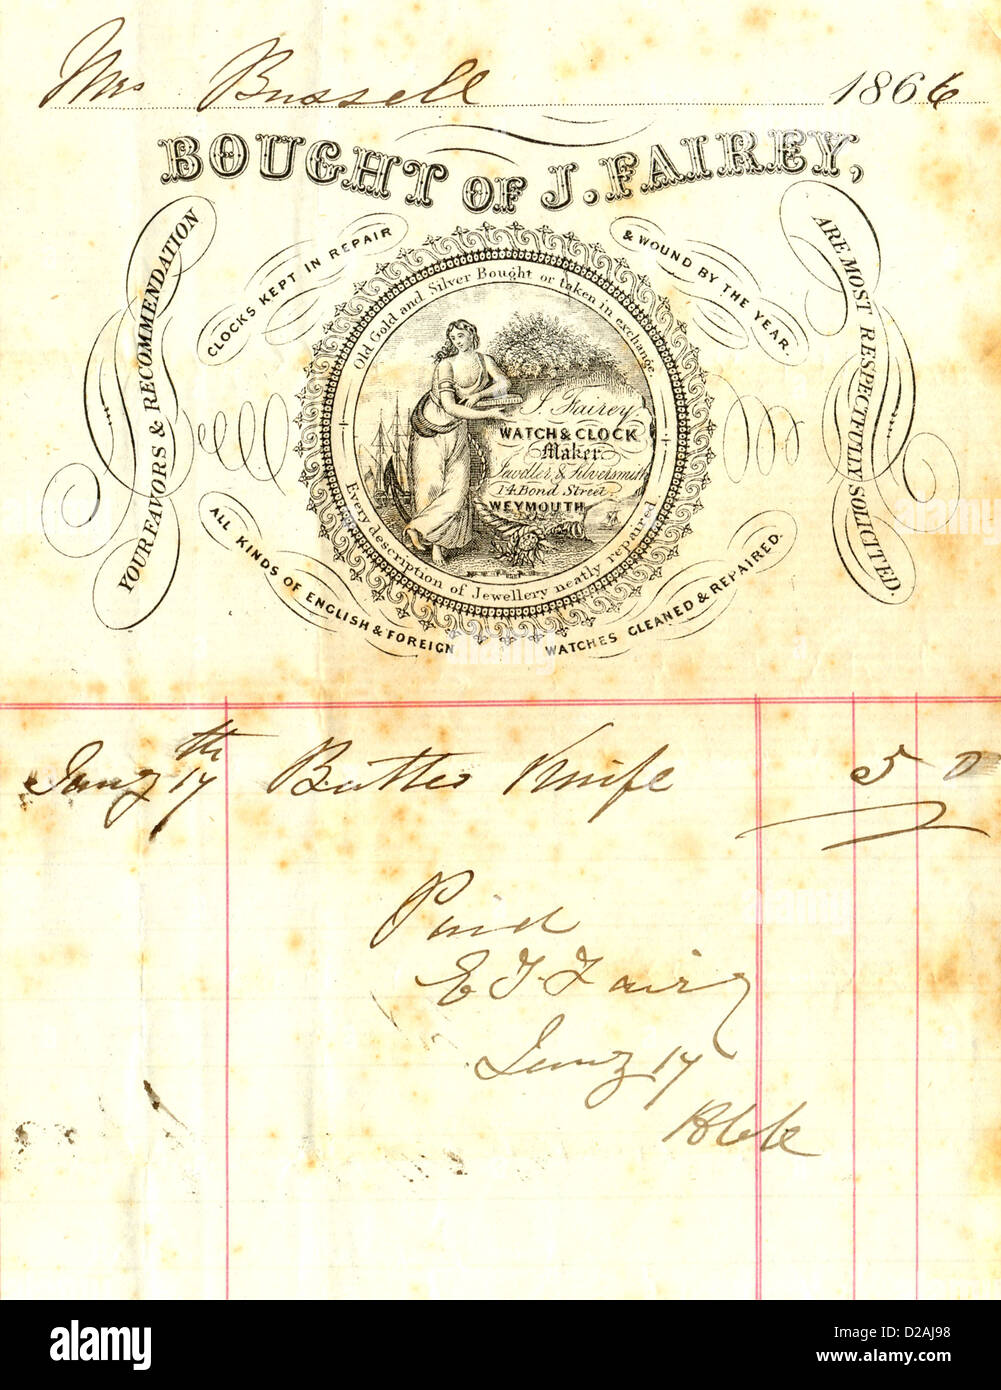 Mrs Bussell 1866
BOUGHT OF J. FAIREY,
YOUR FAVORS & RECOMMENDATION
ARE MOST RESPECTFULLY SOLICITED.
CLOCKS KEPT IN REPAIR
& WOUND BY THE YEAR.
Old Gold and Silver Bought or taken in exchange.
J. Fairey
WATCH & CLOCK
Maker
Jeweller & Silversmith
14 Bond Street
WEYMOUTH
Every description of Jewellery neatly repaired.
ALL KINDS OF ENGLISH & FOREIGN
WATCHES CLEANED & REPAIRED.
Jany 17th Butter Knife 5 0
Paid
E J Fairey
Jany 17
alamy
Image ID: D2AJ98
www.alamy.com